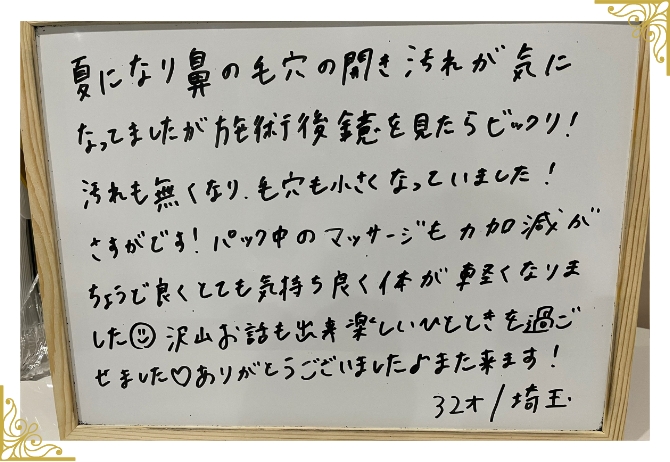 夏になり鼻の毛穴の開き汚れが気に
なってましたが施術後鏡を見たらビックリ!
汚れも無くなり、毛穴も小さくなっていました!
さすがです!パック中のマッサージも力加減が
ちょうど良くとても気持ち良く体が軽くなりま
した☺沢山お話も出来楽しいひとときを過ご
せました♡ありがとうございました♪また来ます!
32才/埼玉